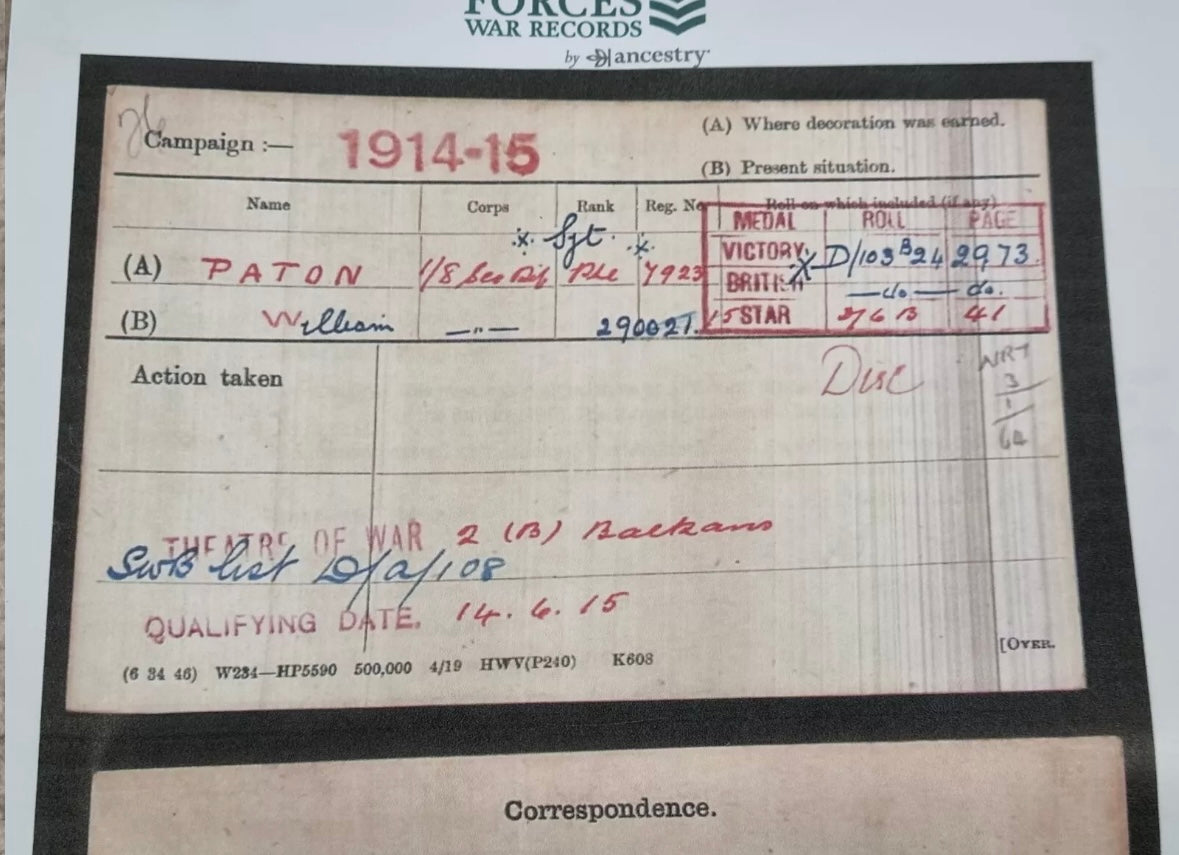 FORCES
WAR RECORDS
by ancestry
Campaign :— 1914-15
(A) Where decoration was earned.
(B) Present situation.
Name Corps Rank Reg. No. Roll on which included (if any)
MEDAL ROLL PAGE
Sgt.
(A) PATON 1/8 Sco Rif Pte 7923
VICTORY D/103 B24 2973.
BRITISH —do.— do.
(B) William —"— 290021.
15 STAR 41
Action taken
Disc
NRY
3
1
64
THEATRE OF WAR 2 (B) Balkans
SWB list D/a/108
QUALIFYING DATE. 14. 6. 15
[OVER.
(6 34 46) W234—HP5590 500,000 4/19 HWV(P240) K608
Correspondence.